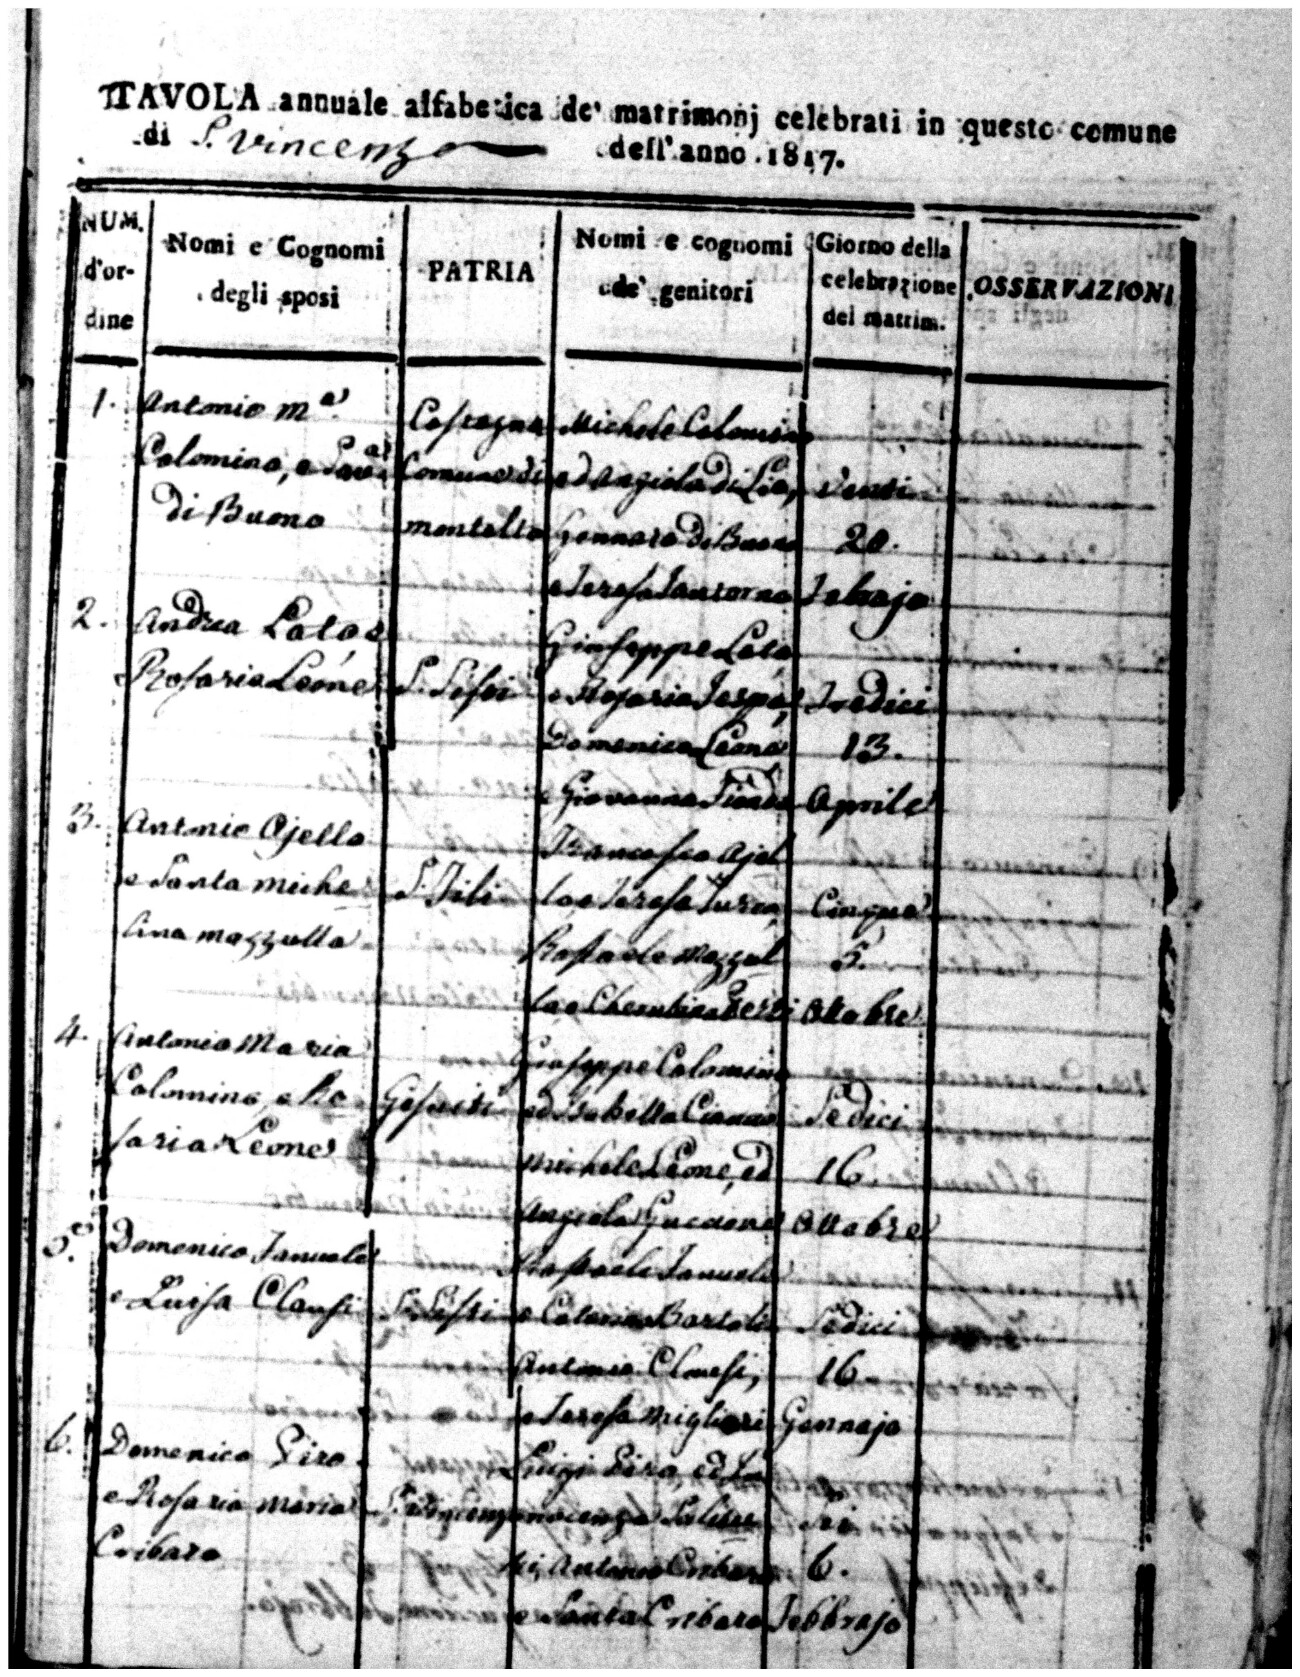 TAVOLA annuale alfabetica de' matrimonj celebrati in questo comune
di S. Vincenzo dell'anno 1817.
NUM. d'or-dine
Nomi e Cognomi degli sposi
PATRIA
Nomi e cognomi de' genitori
Giorno della celebrazione del matrim.
OSSERVAZIONI
1. Antonio Mª
Colomino, e
di Buono
Comune di
montalto
Michele Colomino
ed Angiola di Lio,
Gennaro di Buono
e Teresa
Venti
20.
Febrajo
2. Andrea Lato e
Rosaria Leone
S. Sisti
Giuseppe Lato
e Rosaria
Domenico Leone
e Giovanna
Tredici
13.
Aprile
3. Antonio Ajello
e Santa Miche
lina Mazzulla
S. Fili
Francesco Ajel
lo e Teresa Turco,
Raffaele Mazzul
la e Cherubina
Cinque
5.
Ottobre
4. Antonio Maria
Colomino, e Ro
saria Leone
Gesuiti
Giuseppe Colomino
ed Isabella Cianno
Michele Leone, ed
Angiola Guccione
Sedici
16.
Ottobre
5. Domenico Januele
e Luisa Clausi
S. Sisti
Raffaele Januele
e Catarina Bartoli
Antonio Clausi,
e Teresa Migliori
Sedici
16
Gennajo
6. Domenico Piro
e Rosaria Maria
Cribaro
S. Vincenzo
Luigi Piro, ed In
nocenza
Antonio Cribaro
e Santa Cribaro
Sei
6.
Febbrajo